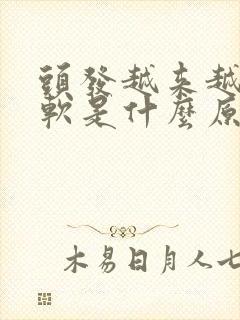 頭發越来越
軟是什麽原
木易日月人七